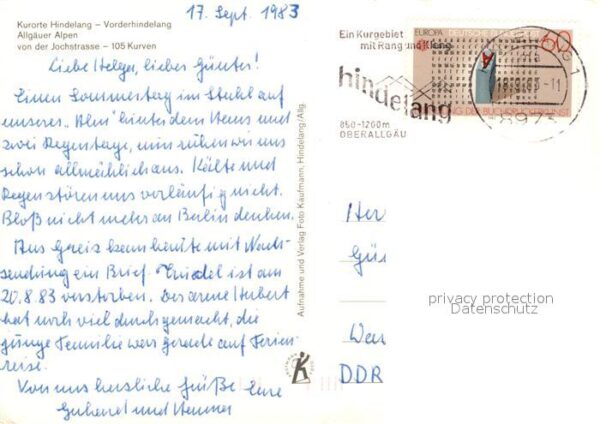 17. Sept. 1983
Kurorte Hindelang – Vorderhindelang
Allgäuer Alpen
von der Jochstrasse – 105 Kurven
Liebe Helga, lieber Günter!
Einen Sommertag im Stuhl auf
unserer "Alm" hinter dem Haus und
zwei Regentage, nun ruhen wir uns
schon allmählich aus. Kälte und
Regen stören uns vorläufig nicht.
Bloß nicht mehr an Berlin denken.
Aus Greiz kam heute mit Nach-
sendung ein Brief. Friedel ist am
20.8.83 verstorben. Der arme Herbert
hat noch viel durchgemacht, die
junge Familie war gerade auf Ferien-
reise.
Von uns herzliche Grüße Eure
und
Aufnahme und Verlag Foto Kaufmann, Hindelang/Allg.
Ein Kurgebiet
mit Rang und Klang
hindelang
850-1200m
OBERALLGÄU
EUROPA DEUTSCHE BUNDESPOST
60
8973
Her
Gü
privacy protection
Datenschutz
DDR